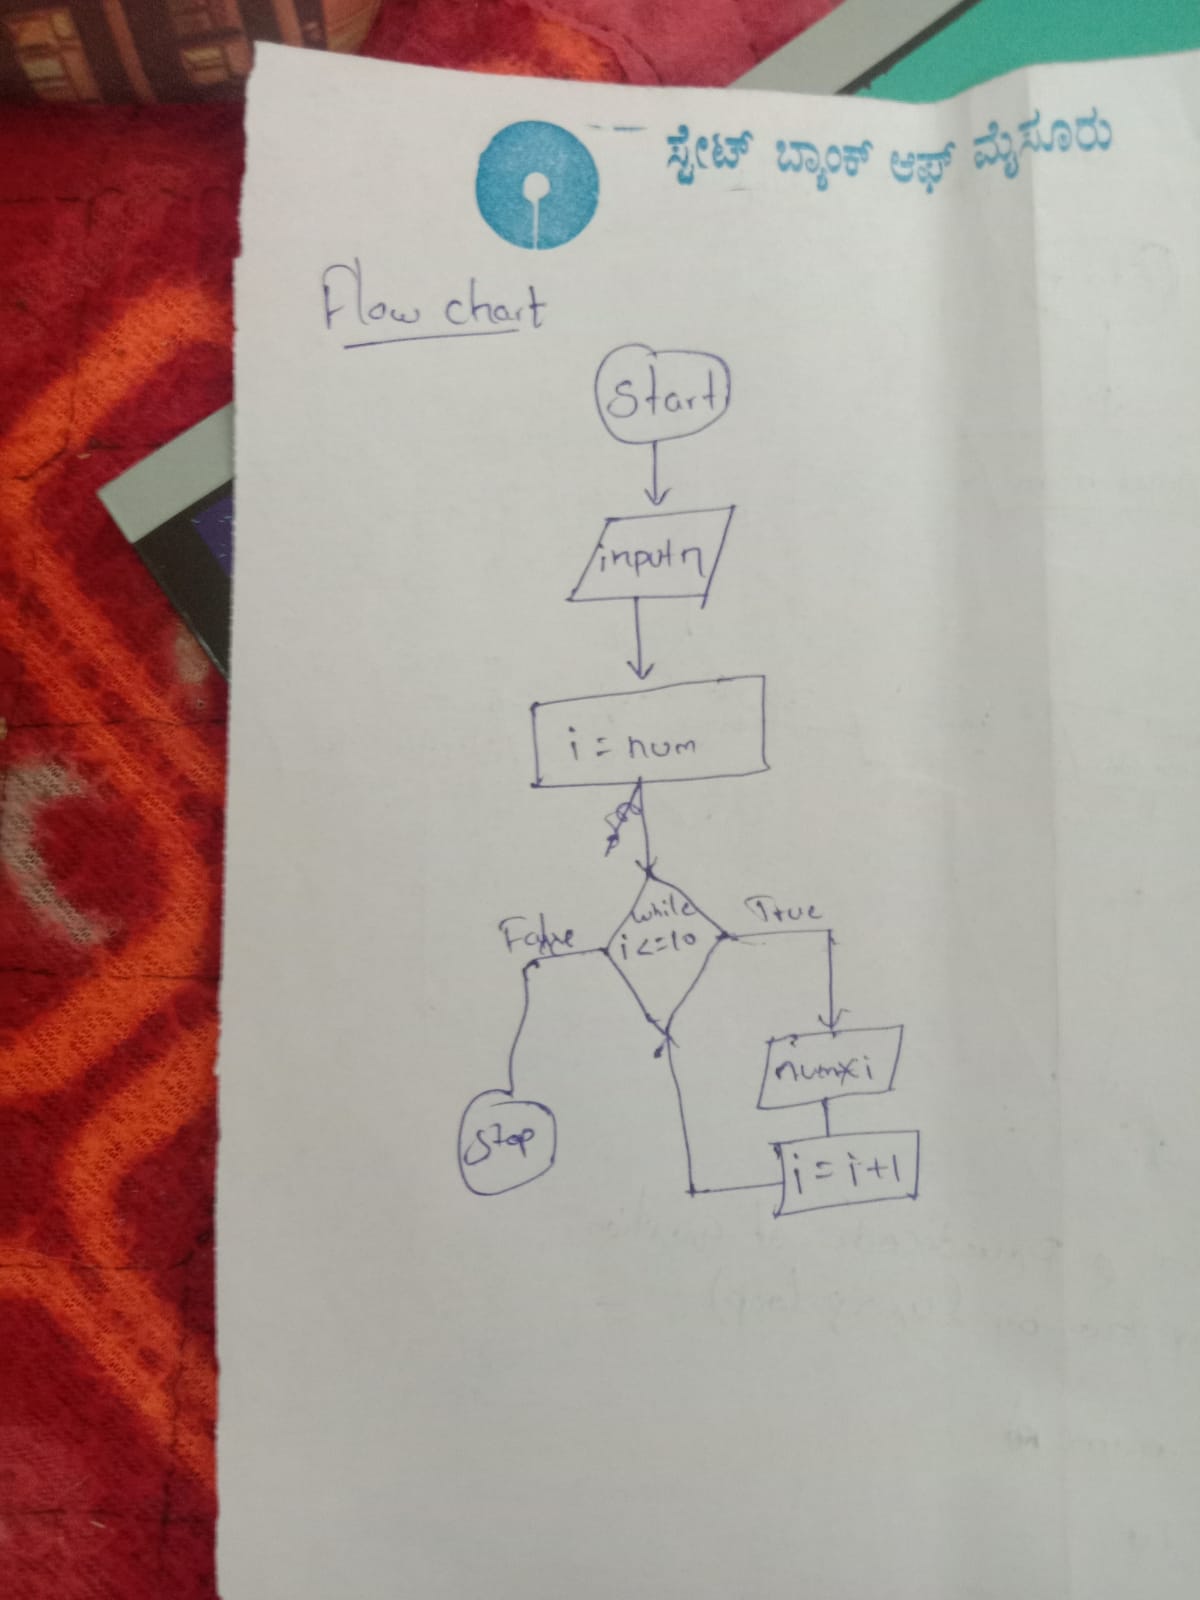 ಸ್ಟೇಟ್ ಬ್ಯಾಂಕ್ ಆಫ್ ಮೈಸೂರು
Flow chart
Start
input n
i = num
while
i <= 10
True
False
num x i
i = i + 1
Stop